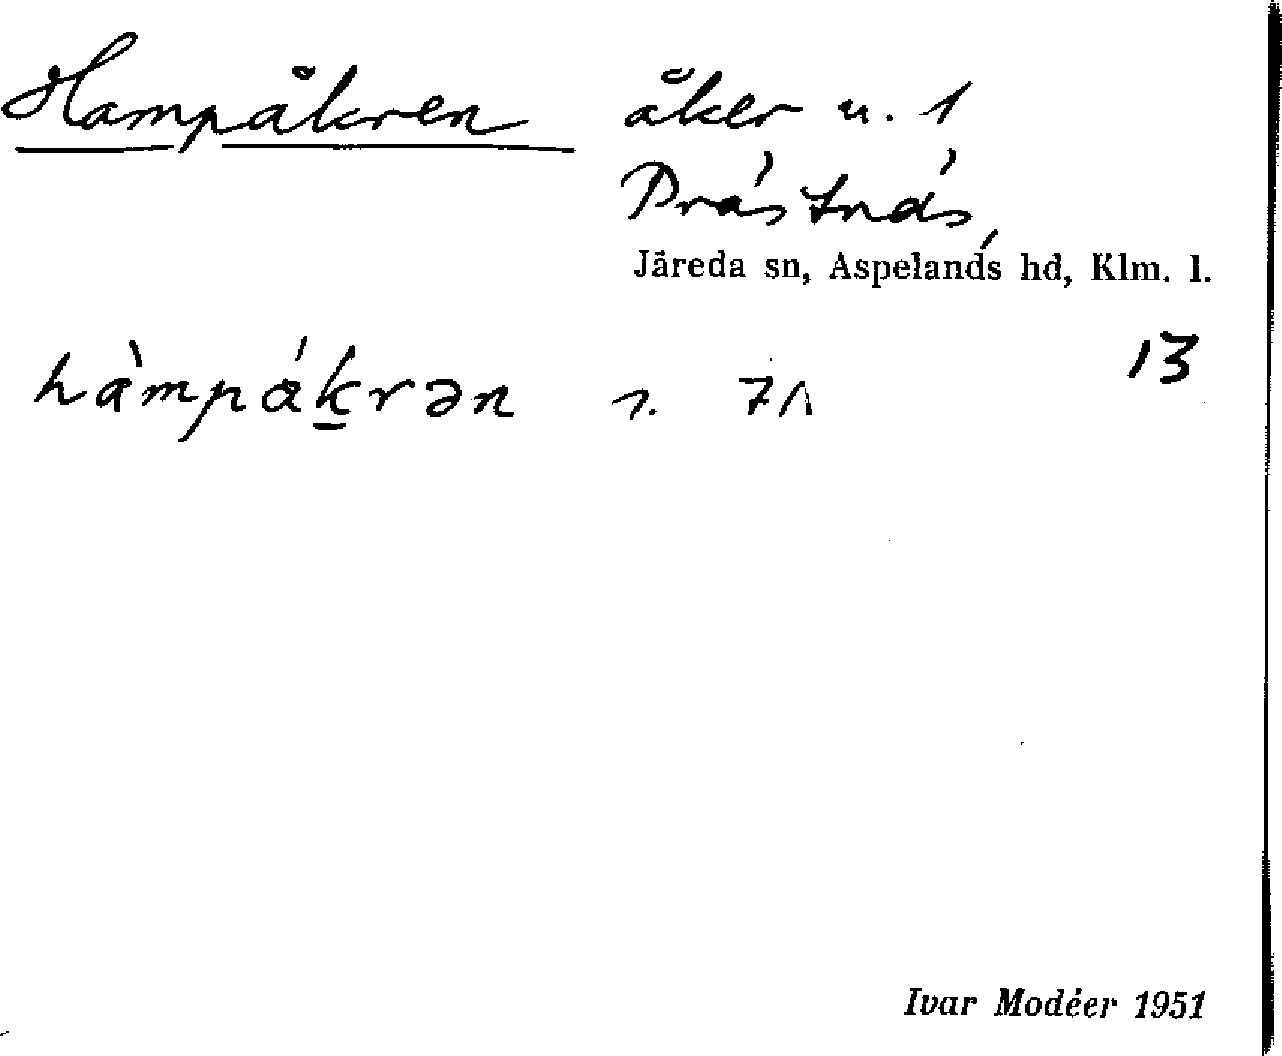 Hampåkren åker u. 1
Prästnäs,
Järeda sn, Aspelands hd, Klm. l.
13
hàmpákrən s. 71
Ivar Modéer 1951